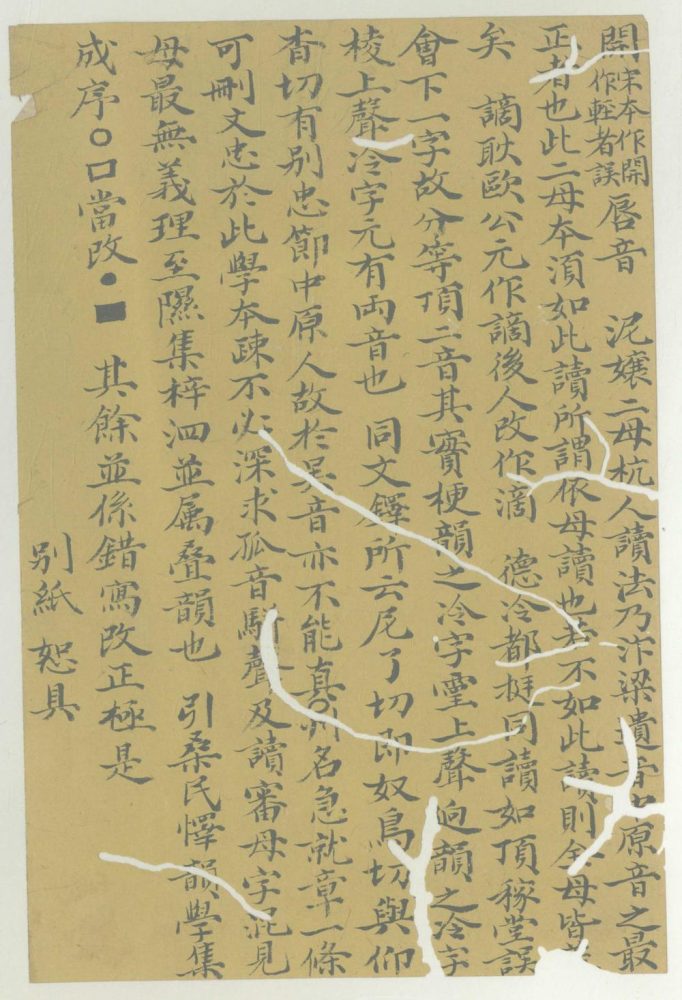 開宋本作開作輕者誤唇音　泥孃二母杭人讀法乃汴梁遺音中原音之最
正者也此二母本須如此讀所謂依母讀也若不如此讀則全母皆
矣　謫耿歐公元作謫後人改作滴　德冷都挺同讀如頂稼堂誤
會下一字故分等頂二音其實梗韻之冷字靈上聲迥韻之冷字
棱上聲冷字元有兩音也　同文鐸所云尼了切即奴鳥切與仰
杳切有別忠節中原人故於吳音亦不能真○州名急就章一條
可刪文忠於此學本疎不必深求孤音駢聲及讀審母字混見
母最無義理至隰集梓泗並屬叠韻也　引桑民懌韻學集
成序○口當改●■　其餘並係錯寫改正極是
別紙恕具